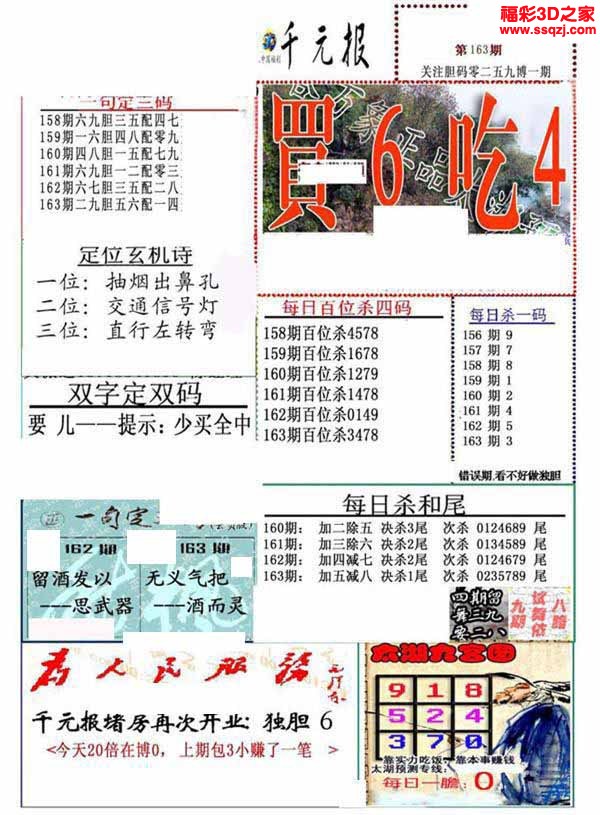 福彩3D之家
www.ssqzj.com
千元报
第163期
关注胆码零二五九博一期
一句定三码
158期六九胆三五配四七
159期一六胆四八配零九
160期四八胆一五配七九
161期六九胆一二配零三
162期六七胆三五配二八
163期二九胆五六配一四
買6吃4
定位玄机诗
一位：抽烟出鼻孔
二位：交通信号灯
三位：直行左转弯
每日百位杀四码
158期百位杀4578
159期百位杀1678
160期百位杀1279
161期百位杀1478
162期百位杀0149
163期百位杀3478
每日杀一码
156 期 9
157 期 7
158 期 8
159 期 1
160 期 2
161 期 4
162 期 5
163 期 3
错误期,看不好做独胆
双字定双码
要 儿——提示：少买全中
每日杀和尾
160期： 加二除五 决杀3尾 次杀 0124689 尾
161期： 加三除六 决杀2尾 次杀 0134589 尾
162期： 加四减七 决杀2尾 次杀 0124679 尾
163期： 加五减八 决杀1尾 次杀 0235789 尾
一句定
162期
留酒发以
---思武器
163期
无义气把
---酒而灵
四期留
舞三九
要二八
九期
试舞依
八路
为人民服务
千元报堵房再次开业：独胆 6
<今天20倍在博0，上期包3小赚了一笔 >
太湖九宫图
9 1 8
5 2 4
3 7 0
靠实力吃饭，靠本事赚钱
太湖预测专线：
每日一胆：0